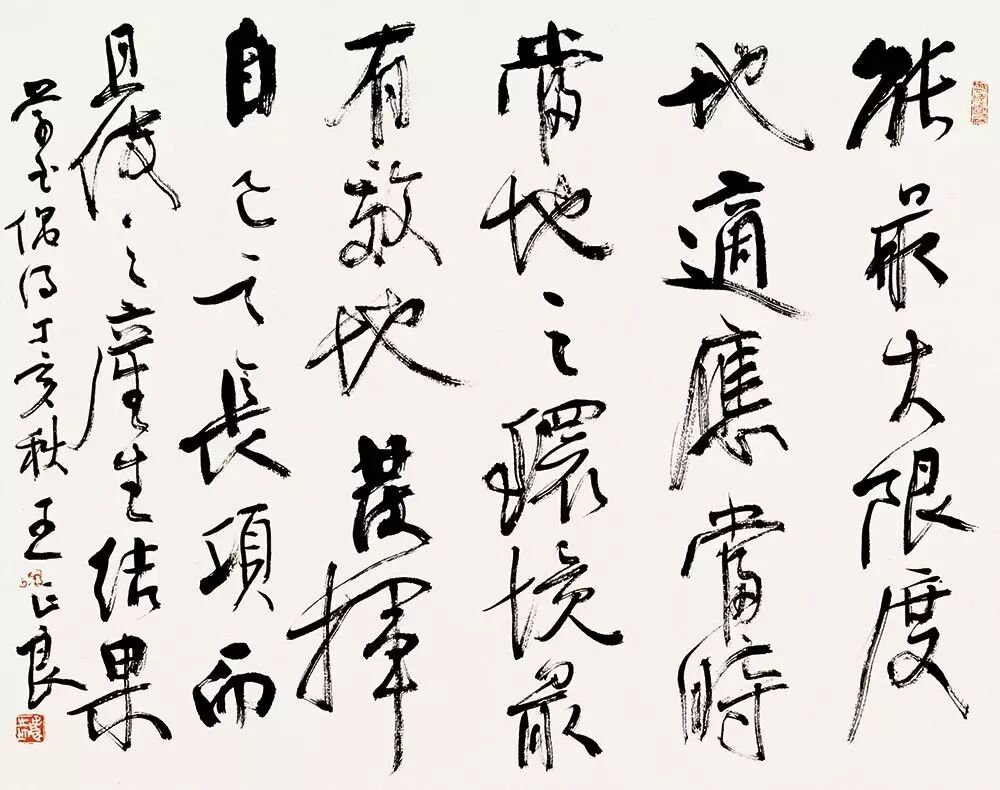 能最大限度
地適應當時
當地之環境最
有效地發揮
自己之長項而
且使之產生結果
偶得丁亥秋王正良